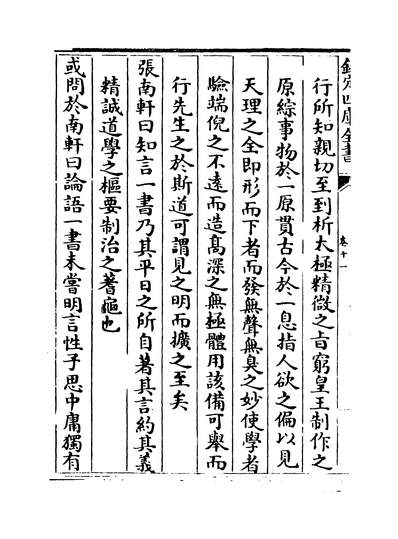 欽定四庫全書
卷十一
行所知親切至到析太極精微之㫖窮皇王制作之
原綜事物於一原貫古今於一息指人欲之偏以見
天理之全即形而下者而發無聲無臭之妙使學者
驗端倪之不遠而造髙深之無極體用該備可舉而
行先生之於斯道可謂見之明而擴之至矣
張南軒曰知言一書乃其平日之所自著其言約其義
精誠道學之樞要制治之蓍龜也
或問於南軒曰論語一書未嘗明言性子思中庸獨有